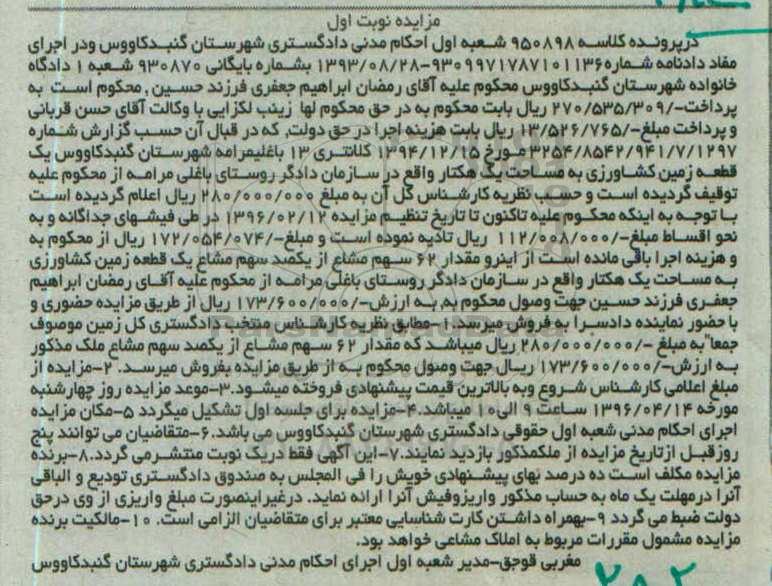 مزایده نوبت اول
درپرونده کلاسه ۹۵۰۸۹۸ شعبه اول احکام مدنی دادگستری شهرستان گنبدکاووس ودر اجرای
مفاد دادنامه شماره۹۳۰۹۹۷۱۷۸۷۱۰۱۱۳۶-۱۳۹۳/۰۸/۲۸ بشماره بایگانی ۹۳۰۸۷۰ شعبه ۱ دادگاه
خانواده شهرستان گنبدکاووس محکوم علیه آقای رمضان ابراهیم جعفری فرزند حسین , محکوم است به
پرداخت-/۲۷۰/۵۳۵/۳۰۹ ریال بابت محکوم به در حق محکوم لها زینب لکزایی با وکالت آقای حسن قربانی
و پرداخت مبلغ-/۱۳/۵۲۶/۷۶۵ ریال بابت هزینه اجرا در حق دولت, که در قبال آن حسب گزارش شماره
۳۲۵۴/۸۵۴۲/۹۴۱/۷/۱۲۹۷ مورخ ۱۳۹۴/۱۲/۱۵ کلانتری ۱۳ باغلیمرامه شهرستان گنبدکاووس یک
قطعه زمین کشاورزی به مساحت یک هکتار واقع در سازمان دادگر روستای باغلی مرامه از محکوم علیه
توقیف گردیده است و حسب نظریه کارشناس کل آن به مبلغ ۲۸۰/۰۰۰/۰۰۰ ریال اعلام گردیده است
با توجه به اینکه محکوم علیه تاکنون تا تاریخ تنظیم مزایده ۱۳۹۶/۰۲/۱۲ در طی فیشهای جداگانه و به
نحو اقساط مبلغ-/۱۱۲/۰۰۸/۰۰۰ ریال تادیه نموده است و مبلغ-/۱۷۲/۰۵۴/۰۷۴ ریال از محکوم به
و هزینه اجرا باقی مانده است از اینرو مقدار ۶۲ سهم مشاع از یکصد سهم مشاع یک قطعه زمین کشاورزی
به مساحت یک هکتار واقع در سازمان دادگر روستای باغلی مرامه از محکوم علیه آقای رمضان ابراهیم
جعفری فرزند حسین جهت وصول محکوم به, به ارزش-/۱۷۳/۶۰۰/۰۰۰ ریال از طریق مزایده حضوری و
با حضور نماینده دادسرا به فروش میرسد. ۱-مطابق نظریه کارشناس منتخب دادگستری کل زمین موصوف
جمعا"به مبلغ -/۲۸۰/۰۰۰/۰۰۰ ریال میباشد که مقدار ۶۲ سهم مشاع از یکصد سهم مشاع ملک مذکور
به ارزش-/۱۷۳/۶۰۰/۰۰۰ ریال جهت وصول محکوم به از طریق مزایده بفروش میرسد. ۲-مزایده از
مبلغ اعلامی کارشناس شروع وبه بالاترین قیمت پیشنهادی فروخته میشود.۳-موعد مزایده روز چهارشنبه
مورخه ۱۳۹۶/۰۴/۱۴ ساعت ۹ الی۱۰ میباشد.۴-مزایده برای جلسه اول تشکیل میگردد ۵-مکان مزایده
اجرای احکام مدنی شعبه اول حقوقی دادگستری شهرستان گنبدکاووس می باشد.۶-متقاضیان می توانند پنج
روزقبل ازتاریخ مزایده از ملکمذکور بازدید نمایند.۷-این آگهی فقط دریک نوبت منتشرمی گردد.۸-برنده
مزایده مکلف است ده درصد بهای پیشنهادی خویش را فی المجلس به صندوق دادگستری تودیع و الباقی
آنرا درمهلت یک ماه به حساب مذکور واریزوفیش آنرا ارائه نماید. درغیراینصورت مبلغ واریزی از وی درحق
دولت ضبط می گردد ۹-بهمراه داشتن کارت شناسایی معتبر برای متقاضیان الزامی است. ۱۰-مالکیت برنده
مزایده مشمول مقررات مربوط به املاک مشاعی خواهد بود.
مغربی قوجق-مدیر شعبه اول اجرای احکام مدنی دادگستری شهرستان گنبدکاووس